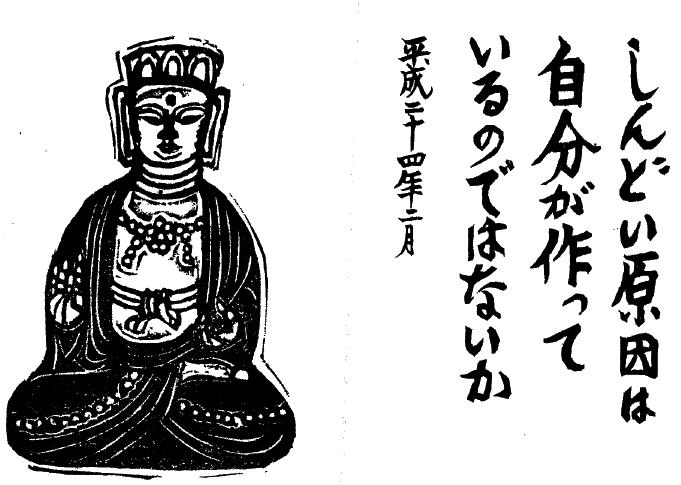 しんどい原因は
自分が作って
いるのではないか
平成二十四年二月